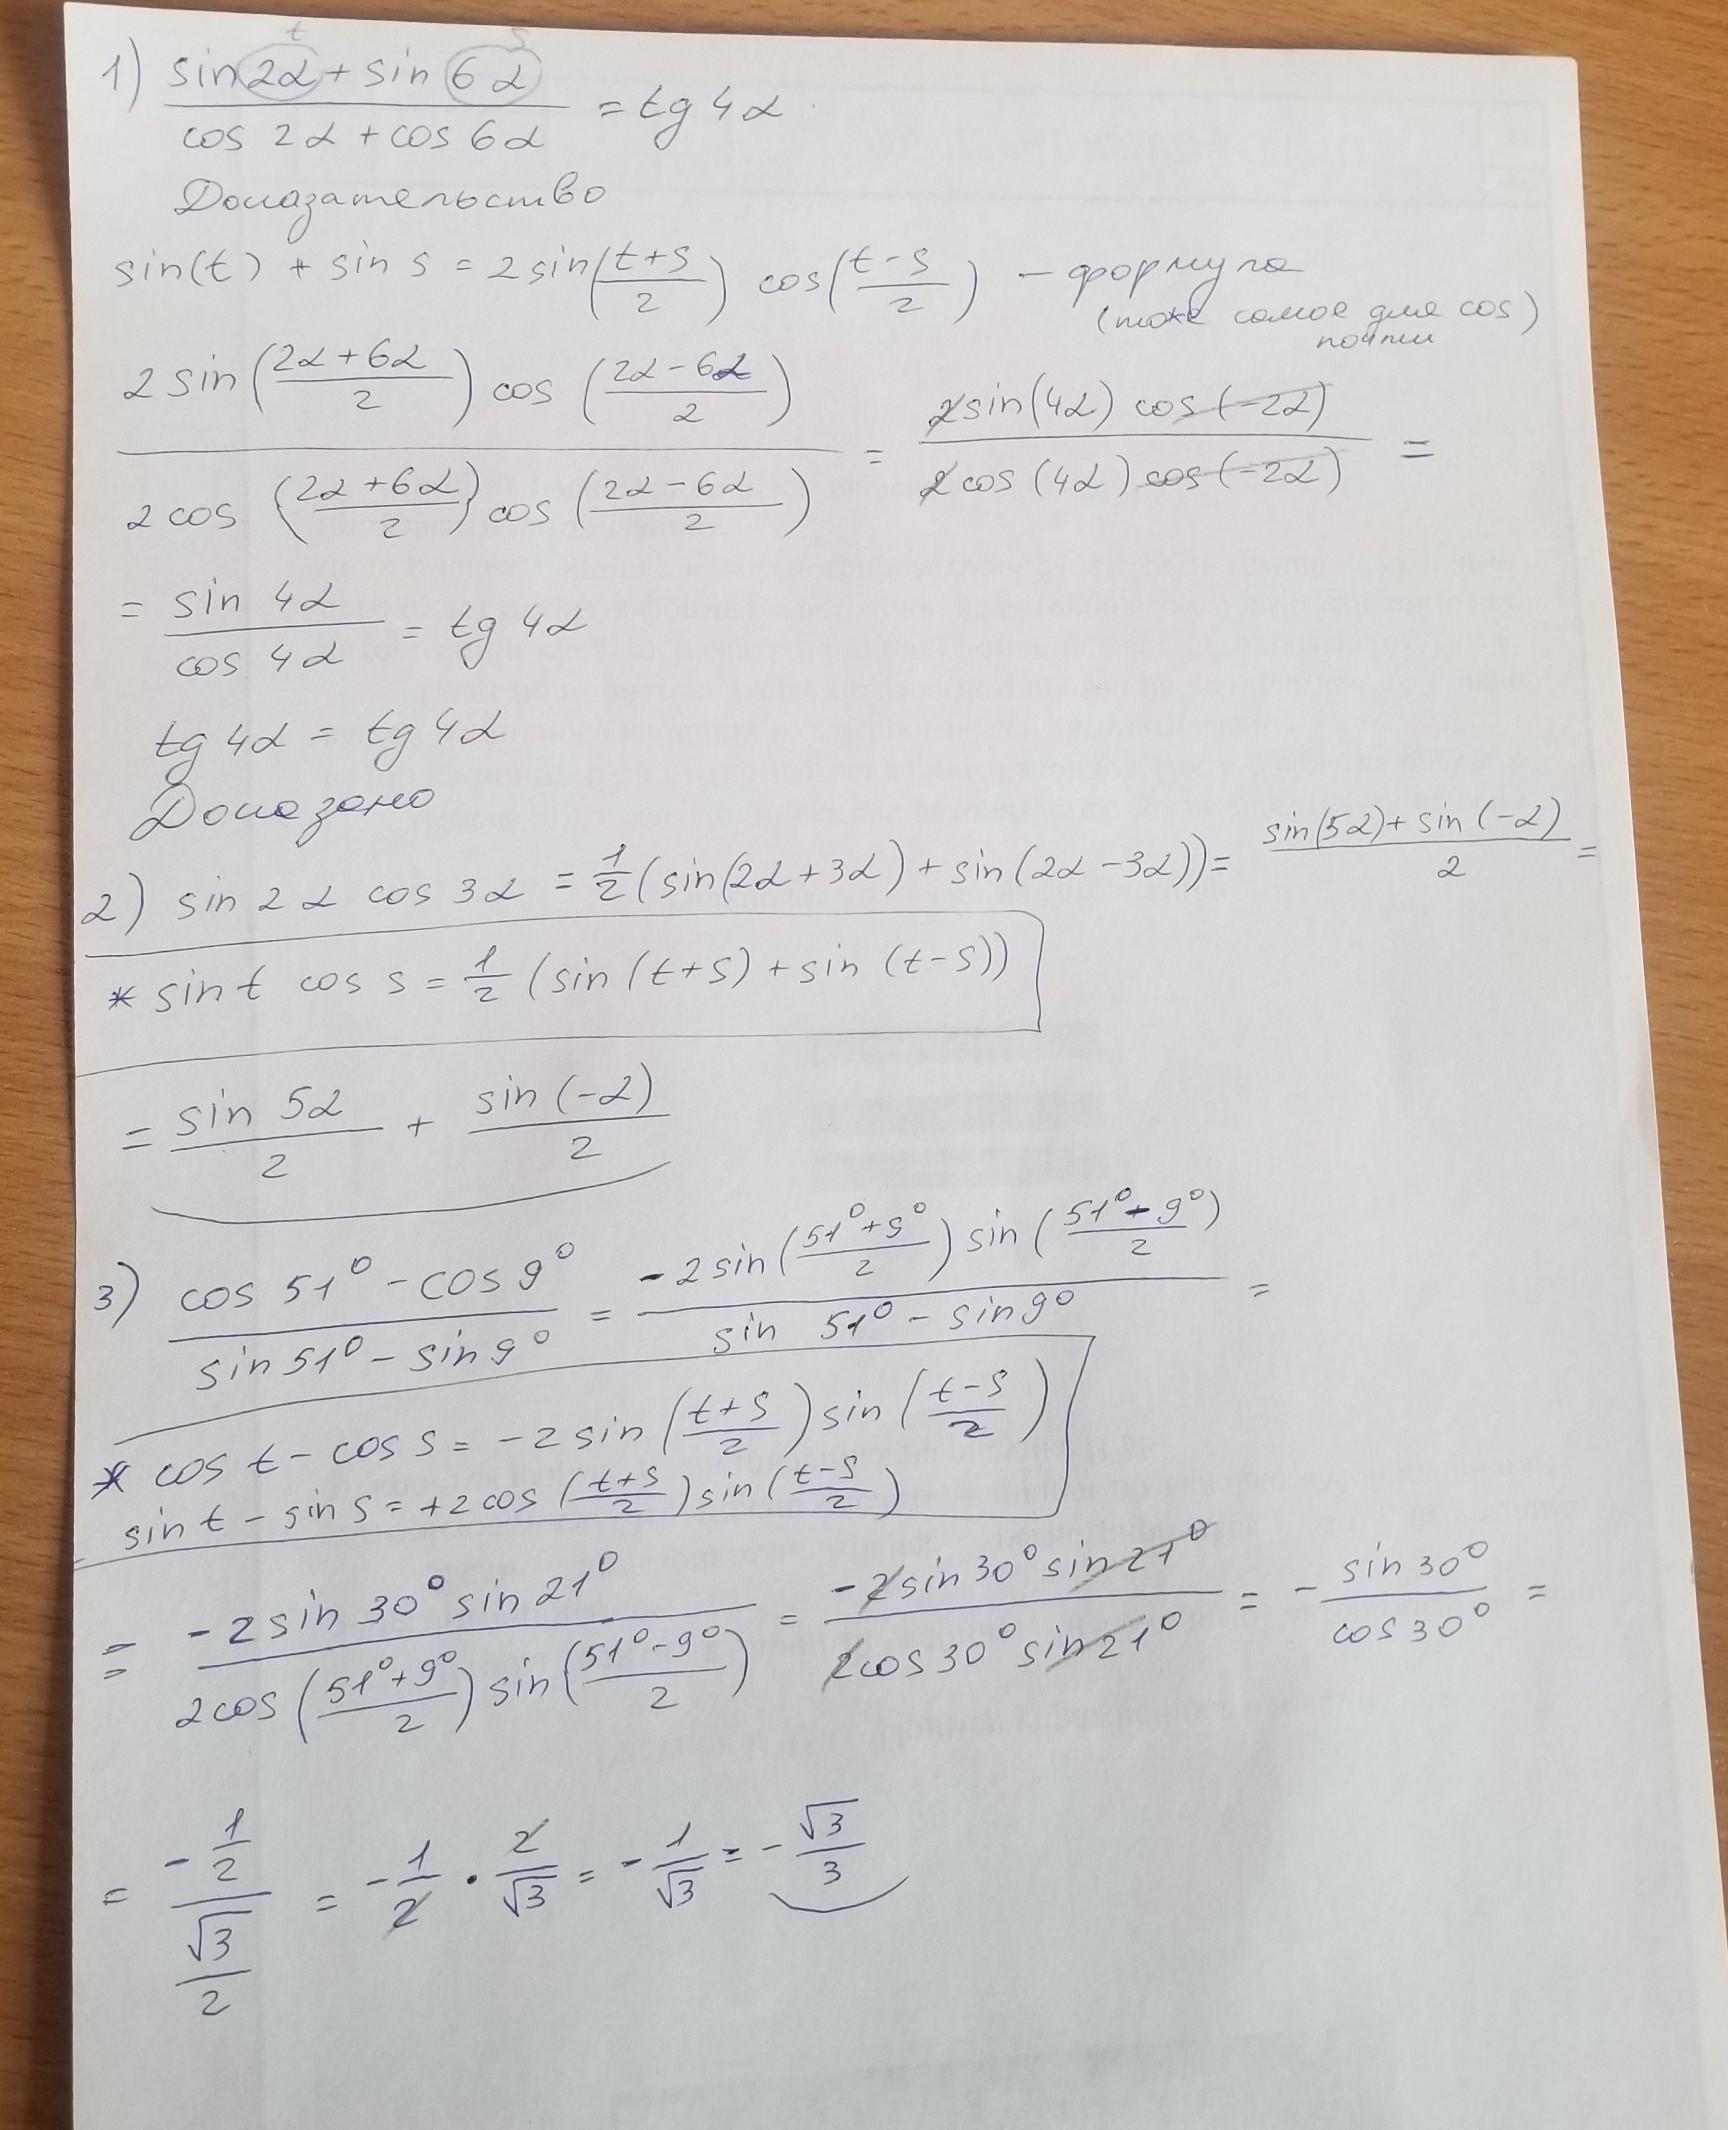 t s
1) (sin 2α + sin 6α)/(cos 2α + cos 6α) = tg 4α
Доказательство
sin(t) + sin s = 2 sin((t+s)/2) cos((t-s)/2) – формула
(тоже самое для cos)
почти
(2 sin((2α+6α)/2) cos((2α-6α)/2))/(2 cos((2α+6α)/2) cos((2α-6α)/2)) = (2 sin(4α) cos(-2α))/(2 cos(4α) cos(-2α)) =
= (sin 4α)/(cos 4α) = tg 4α
tg 4α = tg 4α
Доказано
2) sin 2α cos 3α = 1/2 (sin(2α+3α) + sin(2α-3α)) = (sin(5α) + sin(-α))/2 =
* sin t cos s = 1/2 (sin(t+s) + sin(t-s))
= (sin 5α)/2 + (sin(-α))/2
3) (cos 51° - cos 9°)/(sin 51° - sin 9°) = (-2 sin((51°+9°)/2) sin((51°-9°)/2))/(sin 51° - sin 9°) =
* cos t - cos s = -2 sin((t+s)/2) sin((t-s)/2)
sin t - sin s = +2 cos((t+s)/2) sin((t-s)/2)
= (-2 sin 30° sin 21°)/(2 cos((51°+9°)/2) sin((51°-9°)/2)) = (-2 sin 30° sin 21°)/(2 cos 30° sin 21°) = - (sin 30°)/(cos 30°) =
= (-1/2)/(√3/2) = -1/2 · 2/√3 = -1/√3 = -√3/3